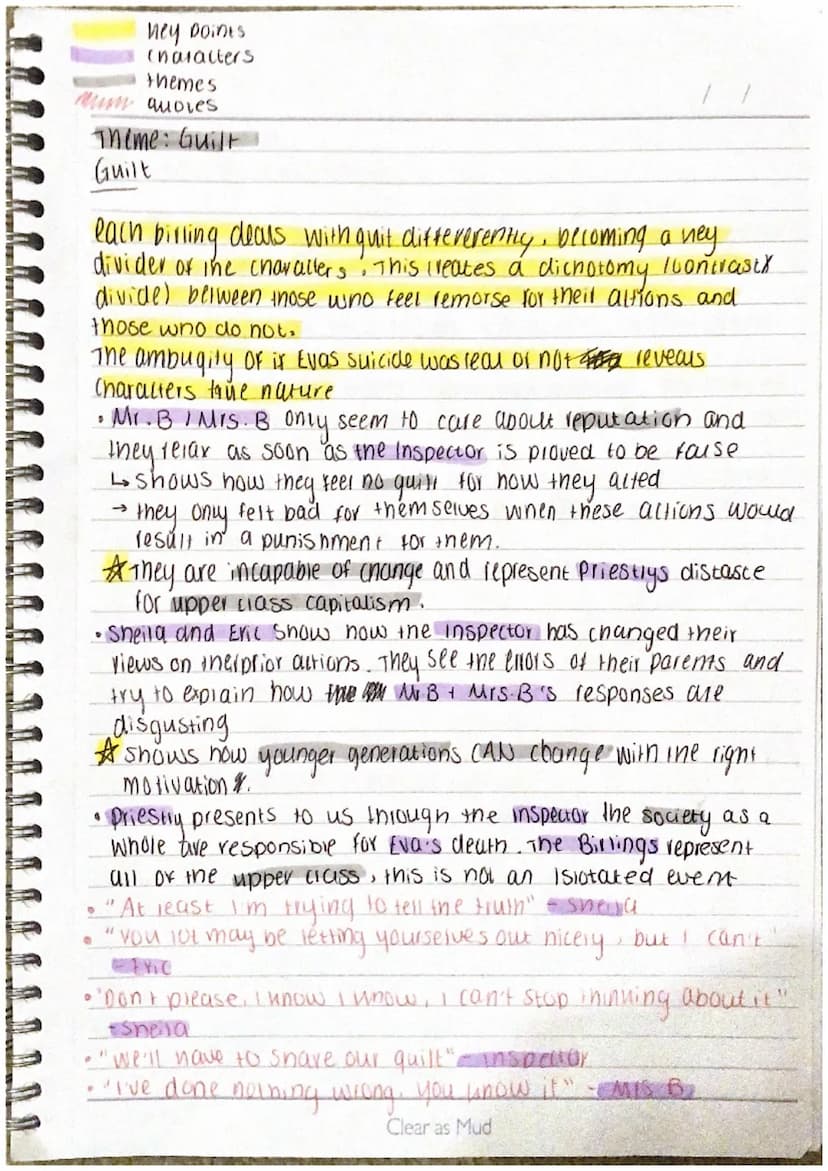 key points
characters
themes
quotes
/ /
Theme: Guilt
Guilt
each birling deals with guilt differerently, becoming a key
divider of the characters. This creates a dichotomy (contrast/
divide) between those who feel remorse for their actions and
those who do not.
The ambugity of if Evas suicide was real or not reveals
characters true nature
• Mr. B / Mrs. B only seem to care about reputation and
they relax as soon as the Inspector is proved to be false
↳ shows how they feel no guilt for how they acted
→ they only felt bad for themselves when these actions would
result in a punishment for them.
☆ They are incapable of change and represent Priestlys distasce
for upper class capitalism.
• Sheila and Eric show how the inspector has changed their
views on their prior actions. They see the errors of their parents and
try to explain how Mr B + Mrs. B's responses are
disgusting
☆ shows how younger generations CAN change with the right
motivation.
• Priestly presents to us through the inspector the society as a
whole are responsible for Eva's death. The Birlings represent
all of the upper class, this is not an islotated event
• "At least I'm trying to tell the truth" - Sheila
• "You lot may be letting yourselves out nicely, but I can't"
- Eric
• "Don't please, I know I know, I can't stop thinking about it"
- Sheila
• "we'll have to share our guilt" - inspector
• "I've done nothing wrong, you know it" - Mrs B
Clear as Mud